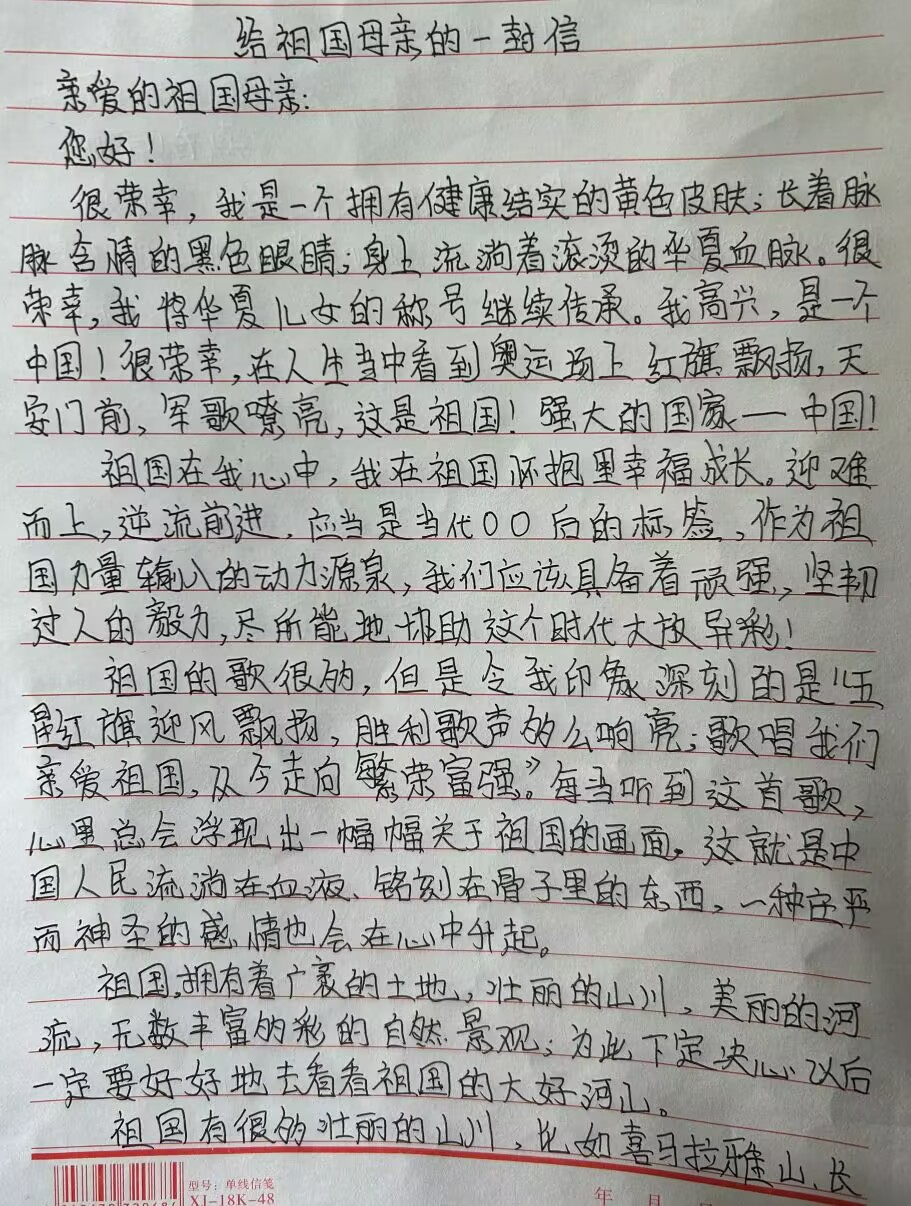 给祖国母亲的一封信
亲爱的祖国母亲:
您好!
很荣幸,我是一个拥有健康结实的黄色皮肤;长着脉
脉含情的黑色眼睛;身上流淌着滚烫的华夏血脉。很
荣幸,我将华夏儿女的称号继续传承。我高兴,是一个
中国!很荣幸,在人生当中看到奥运场上红旗飘扬,天
安门前,军歌嘹亮,这是祖国!强大的国家一中国!
祖国在我心中,我在祖国怀抱里幸福成长。迎难
而上,逆流前进,应当是当代00后的标签,作为祖
国力量输入的动力源泉,我们应该具备着顽强,坚韧
过人的毅力,尽所能地协助这个时代大放异彩!
祖国的歌很多,但是令我印象深刻的是《五
星红旗迎风飘扬,胜利歌声多么响亮;歌唱我们
亲爱祖国,从今走向繁荣富强》。每当听到这首歌,
心里总会浮现出一幅幅关于祖国的画面,这就是中
国人民流淌在血液、铭刻在骨子里的东西,一种庄严
而神圣的感情也会在心中升起。
祖国,拥有着广袤的土地,壮丽的山川,美丽的河
流,无数丰富多彩的自然景观;为此下定决心以后
一定要好好地去看看祖国的大好河山。
祖国有很多壮丽的山川,比如喜马拉雅山、长
型号:单线信笺
XJ-18K-48
年 月